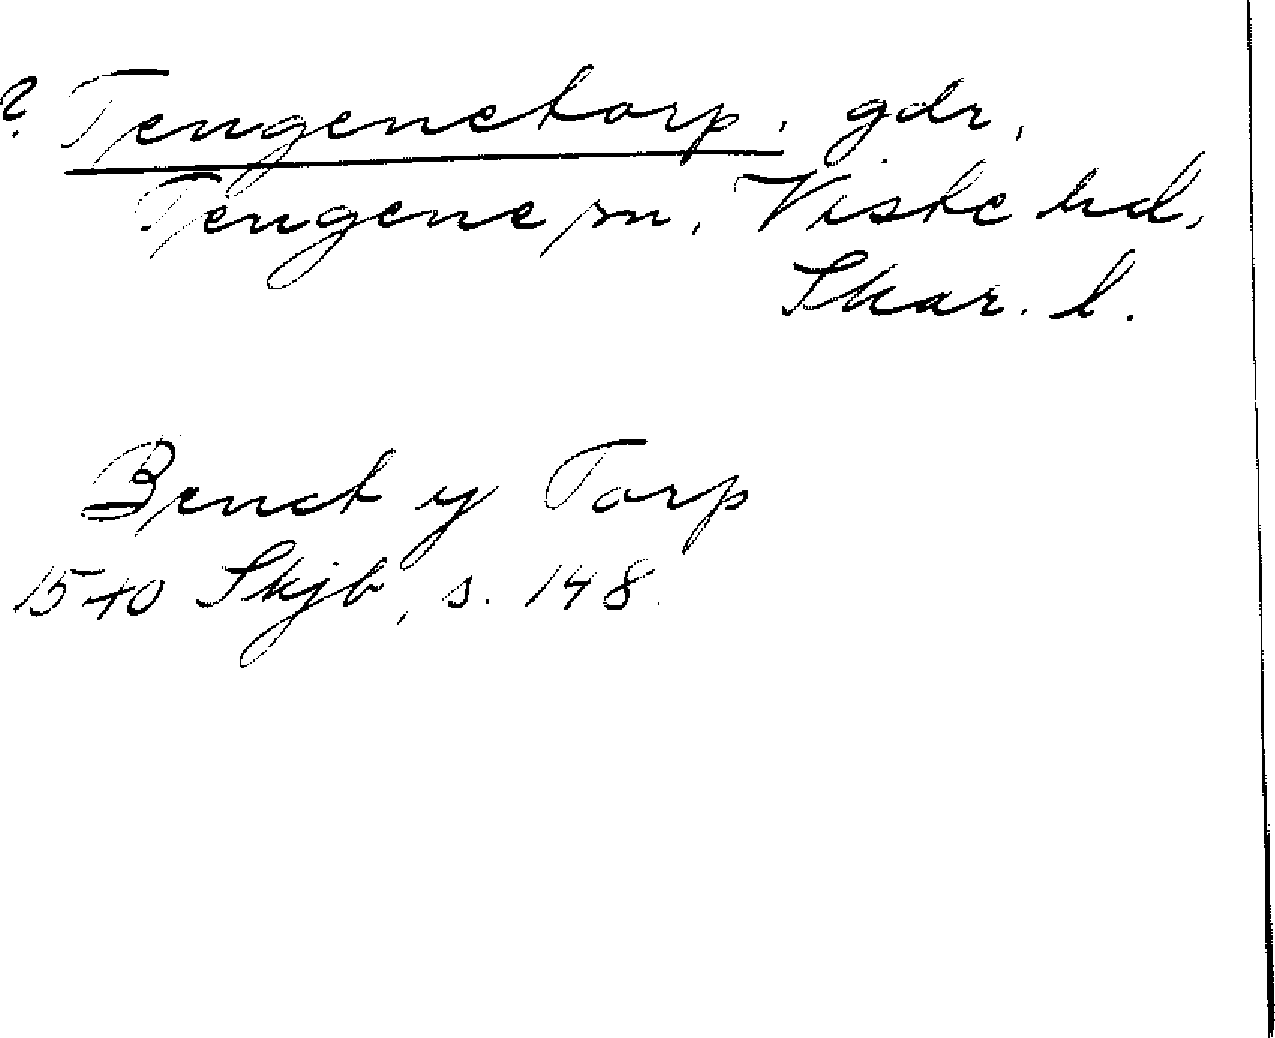 ? Tengenetorp, gdr,
Tengene sn, Viste hd,
Skar. l.
Benct y Torp
1540 Skjb, s. 148.